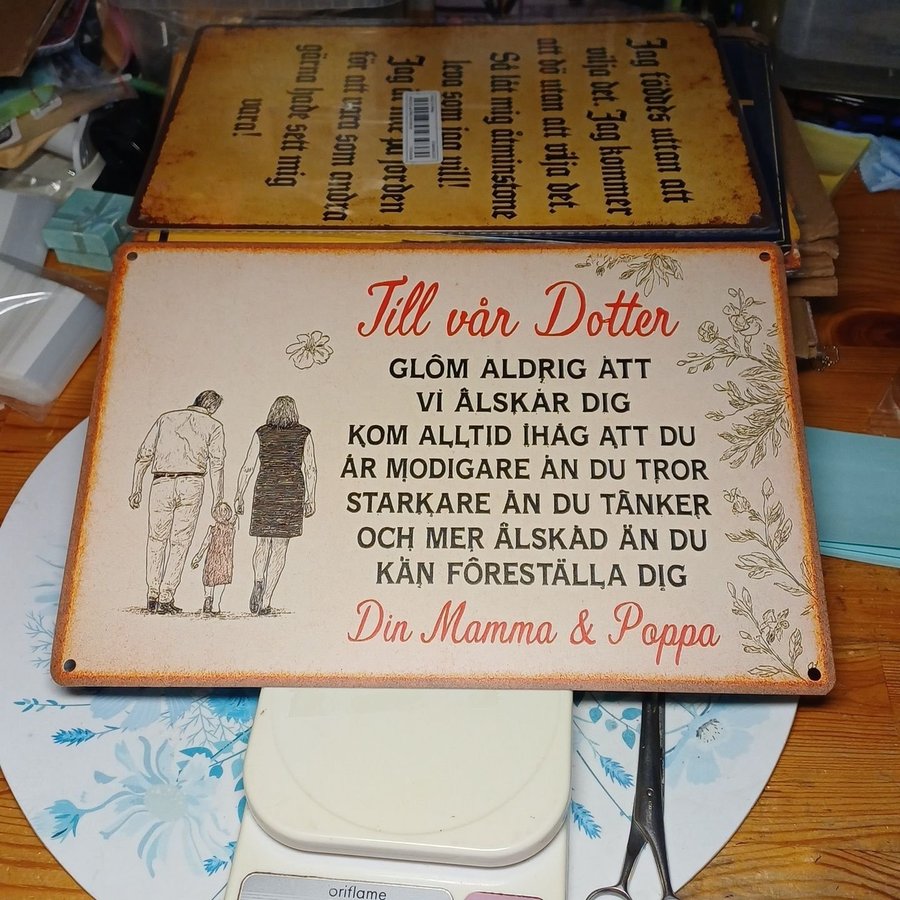 Jag föddes uttan att
vilja det. Jag kommer
att dö utan att vilja det.
Så låt mig åtminstone
leva som jag vill!
Jag är inte på jorden
för att vara som andra
gärna hade sett mig
vara!
Till vår Dotter
GLÔM ALDRIG ATT
VI ÂLSKAR DIG
KOM ALLTID IHÅG ATT DU
ÅR MODIGARE ÅN DU TROR
STARKARE ÅN DU TÂNKER
OCH MER ÂLSKAD ÄN DU
KÄN FÔRESTÄLLA DIG
Din Mamma & Poppa
oriflame